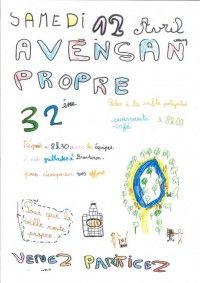 SAMEDI 12 Avril
AVENSAN
PROPRE
32 ème
Rdv à la salle polyvalente
croissants
-café
à 8h00
Départ à 8h30 avec les équipes
grillades à
pour récompenser vos efforts
Pour que la
ville reste
propre
VENEZ PARTICEZ